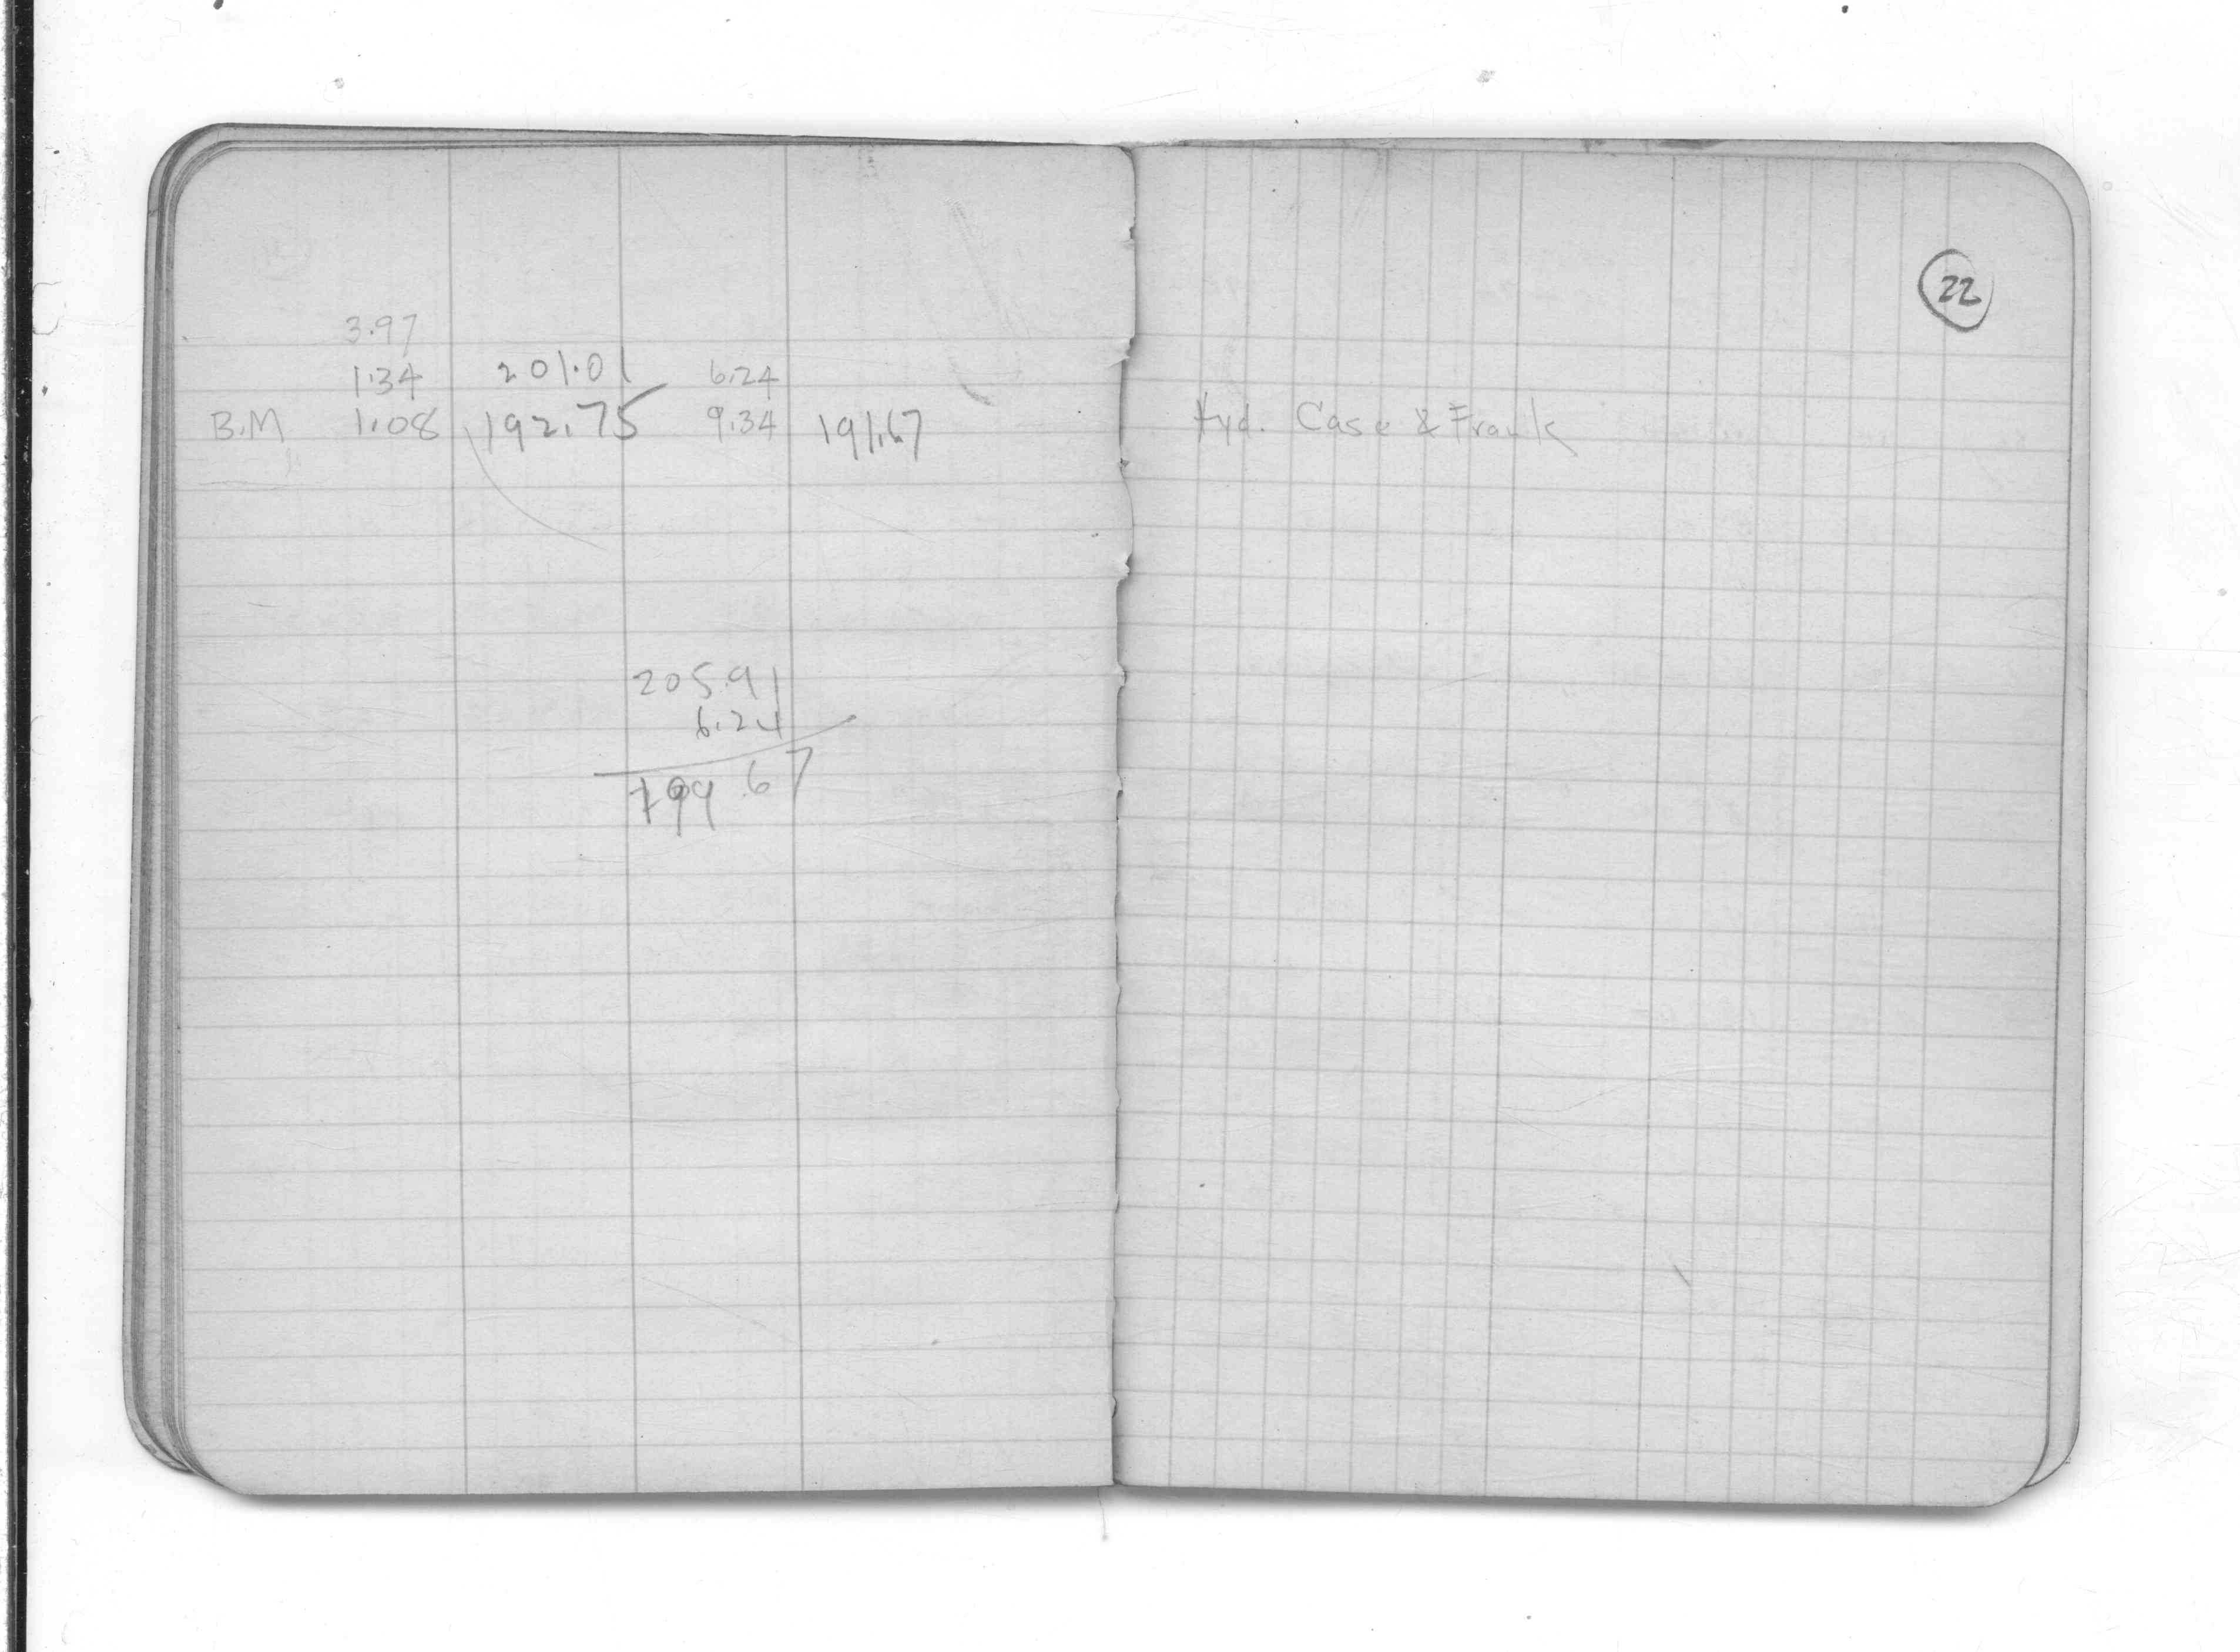 22
3.97
1.34 201.01 6.24
B.M 1.08 192.75 9.34 191.67 Hyd. Case & Frank
205.91
6.24
199.67